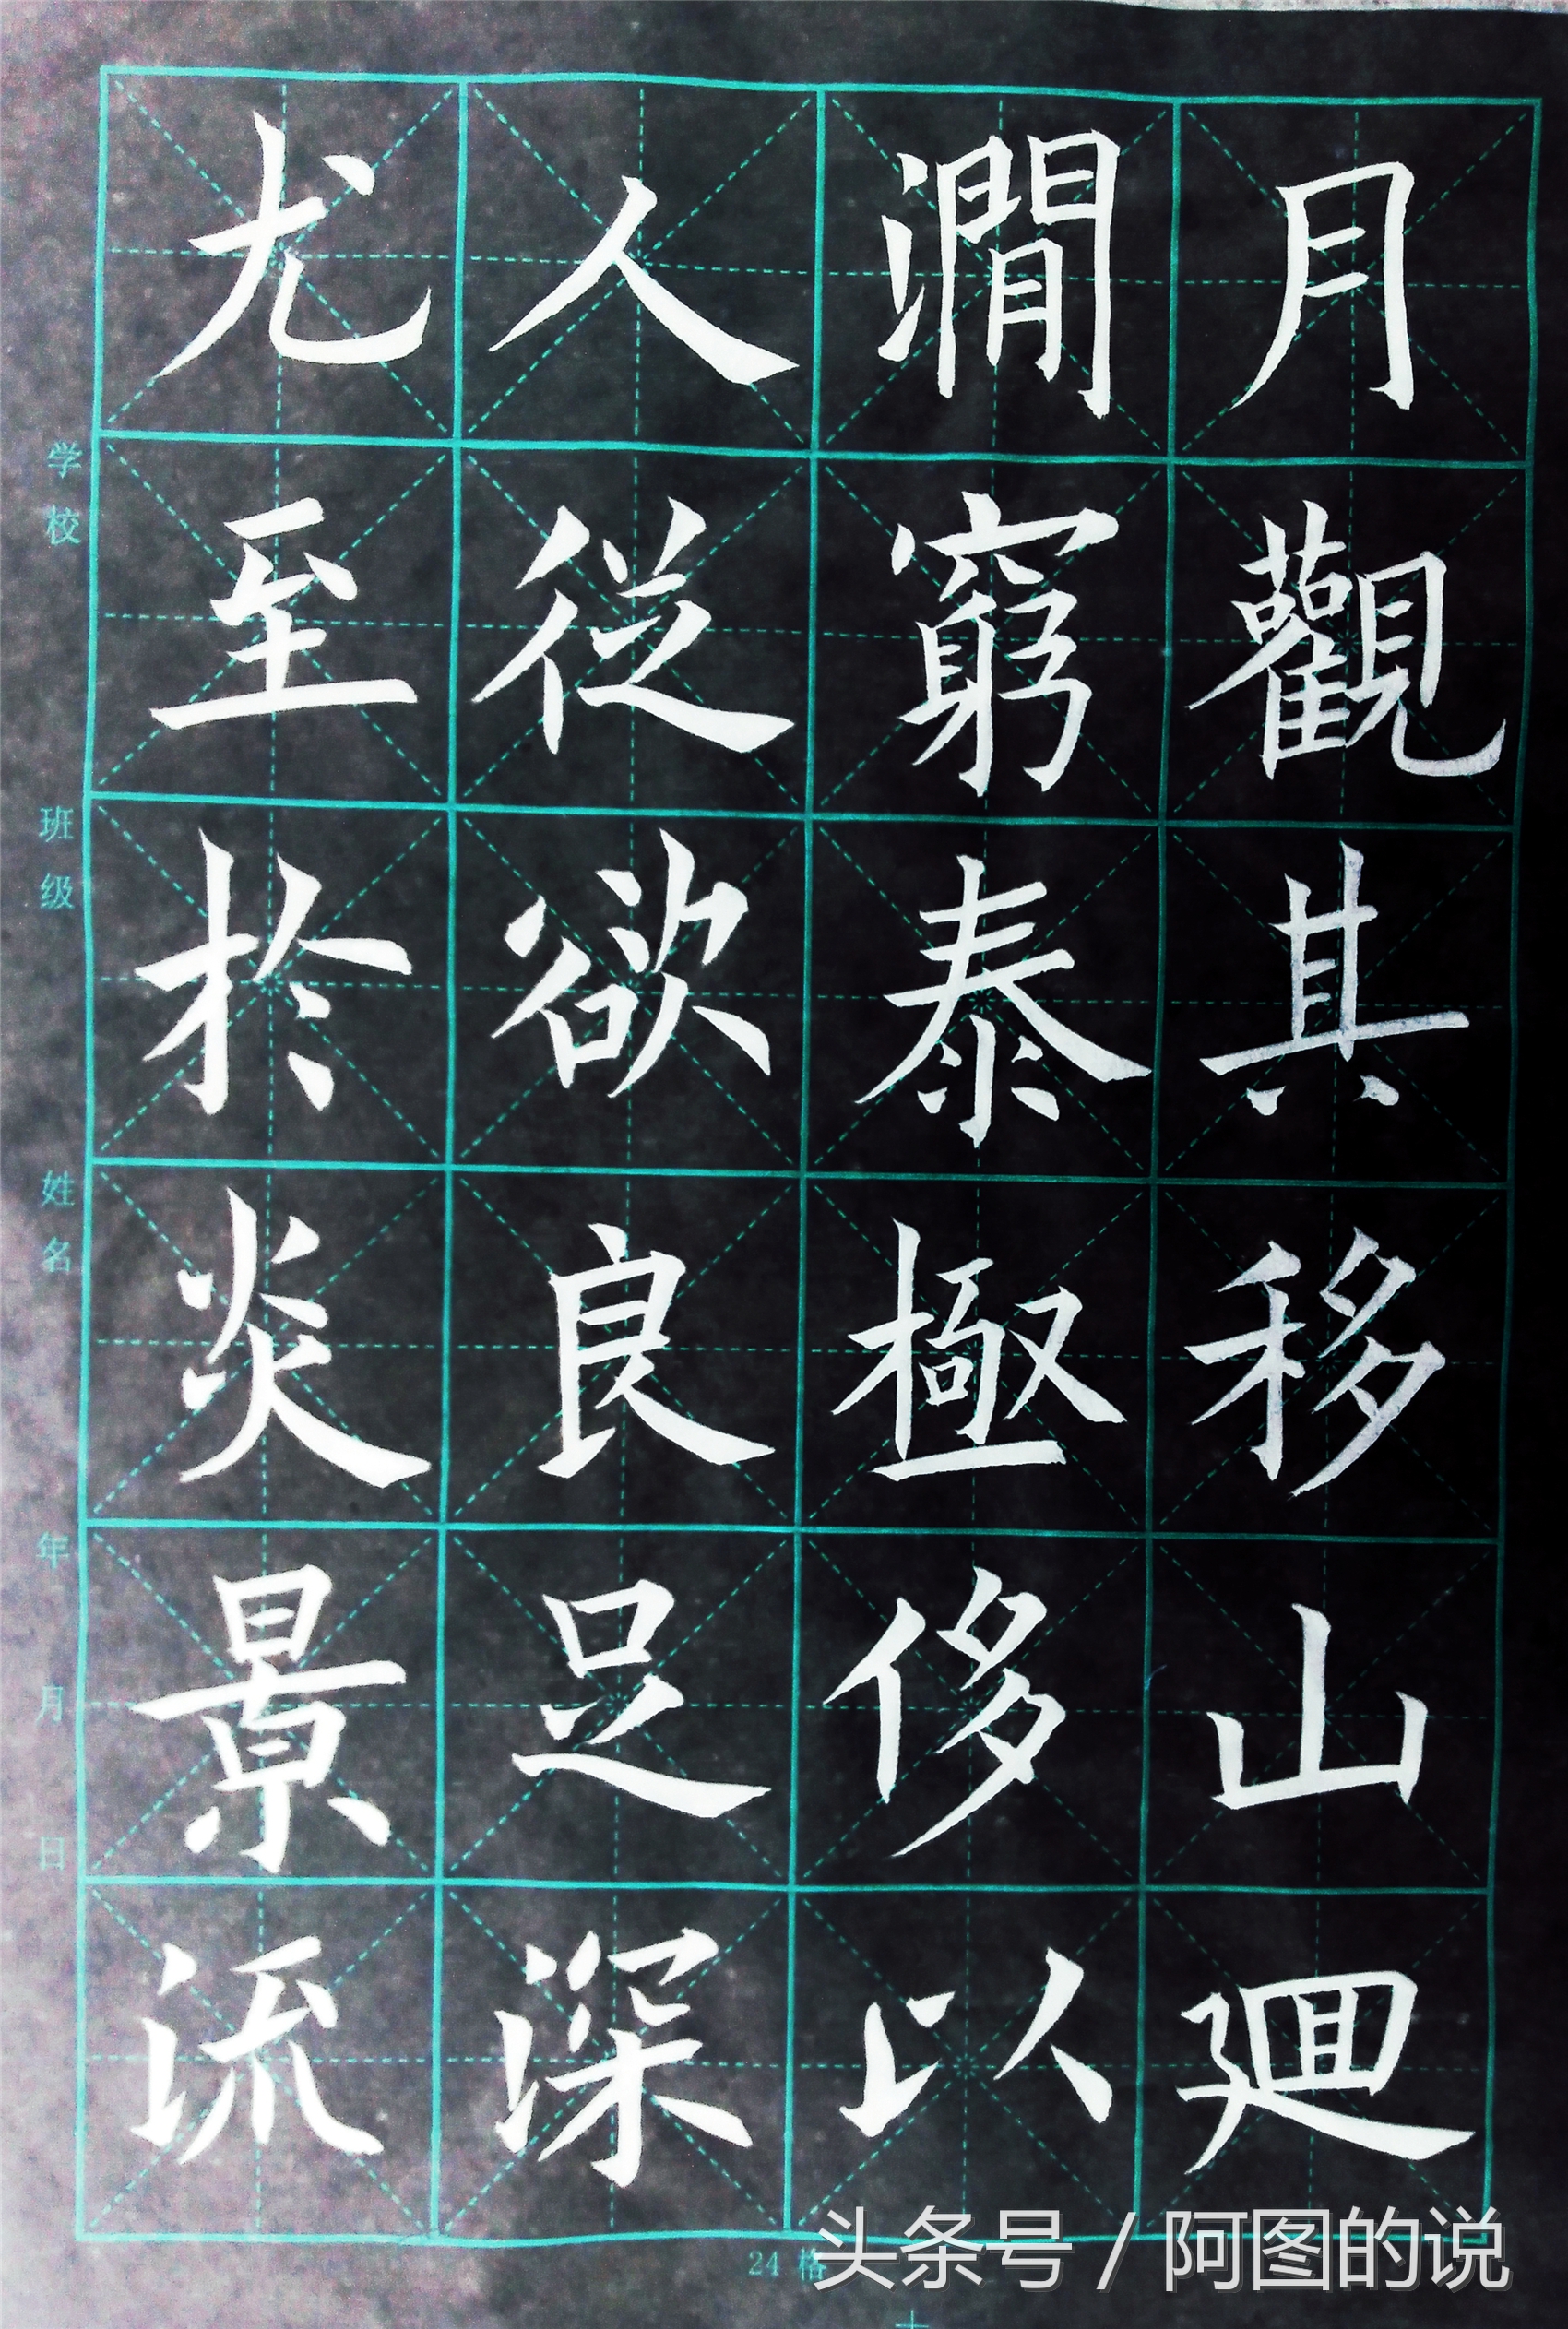 月觀其移山廻
澗窮泰極侈以
人從欲良足深
尤至於炎景流
学校
班级
姓名
年 月 日
24 格
头条号 / 阿图的说